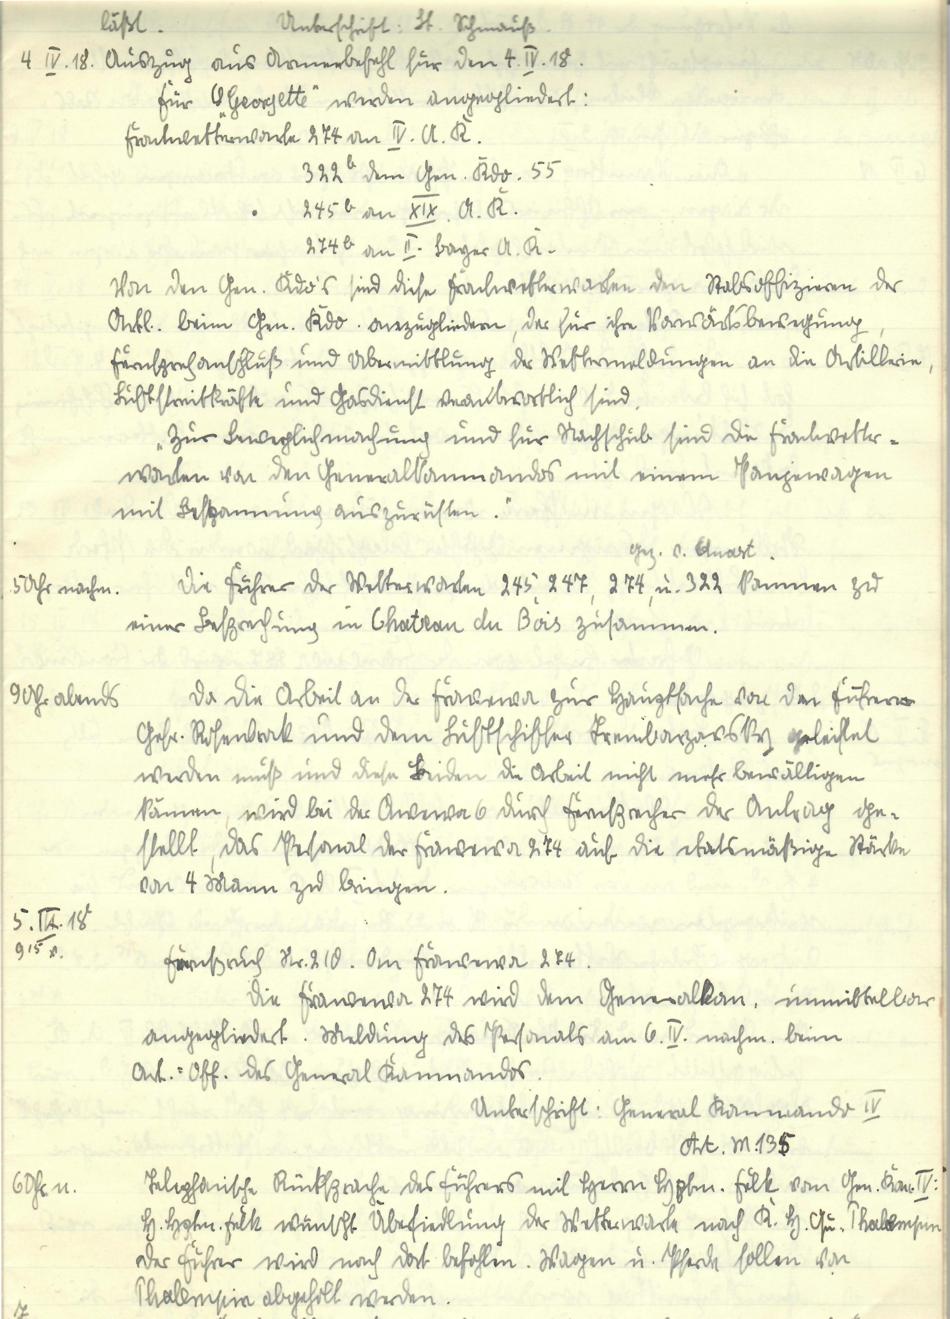 läßt. Unterschrift: Lt. Schmauß.
4 IV. 18. Auszug aus Armeebefehl für den 4. IV. 18.
Für „Georgette" werden angegliedert:
Frontwetterwarte 274 an IV. A. K.
322b dem Gen. Kdo. 55
245b an XIX. A. K.
274b an II. bayer A. K.
Von den Gen. Kdo's sind diese Frontwetterwarten den Stabsoffizieren der
Artl. beim Gen. Kdo. anzugliedern, der für ihre Vorwärtsbewegung,
Fernsprechanschluß und Übermittlung der Wettermeldungen an die Artillerie,
Luftstreitkräfte und Gasdienst verantwortlich sind.
„Zur Beweglichmachung und für Nachschub sind die Frontwetter-
warten von den Generalkommandos mit einem Panjewagen
mit Bespannung auszurüsten."
gez. v.
5 Uhr nachm. Die Führer der Wetterwarten 245, 247, 274, u. 322 kommen zu
einer Besprechung in Chateau du Bois zusammen.
9 Uhr abends Da die Arbeit an der Frawewa zur Hauptsache von den Führern
Gefr. und dem Luftschiffer geleistet
werden muß und diese Beiden die Arbeit nicht mehr bewältigen
können, wird bei der Awewa 6 durch Fernsprecher der Antrag ge-
stellt, das Personal der Frawewa 274 auf die etatsmäßige Stärke
von 4 Mann zu bringen.
5. IV. 18
9 15 v.
Fernspruch Nr. 210. An Frawewa 274.
Die Frawewa 274 wird dem Generalkon. unmittelbar
angegliedert. Meldung des Personals am 6. IV. nachm. beim
Art.=Off. des General Kommandos.
Unterschrift: General Kommando IV
Art. M. 135
6 Uhr n. Telephonische Rücksprache des Führers mit Herrn Hptm. Falk vom Gen. Kom. IV:
H. Hptm. Falk wünscht Übersiedlung der Wetterwarte nach K. H. Qu. Thalempin
der Führer wird nach dort befohlen. Wagen u. Pferde sollen von
Thalempin abgeholt werden.
7